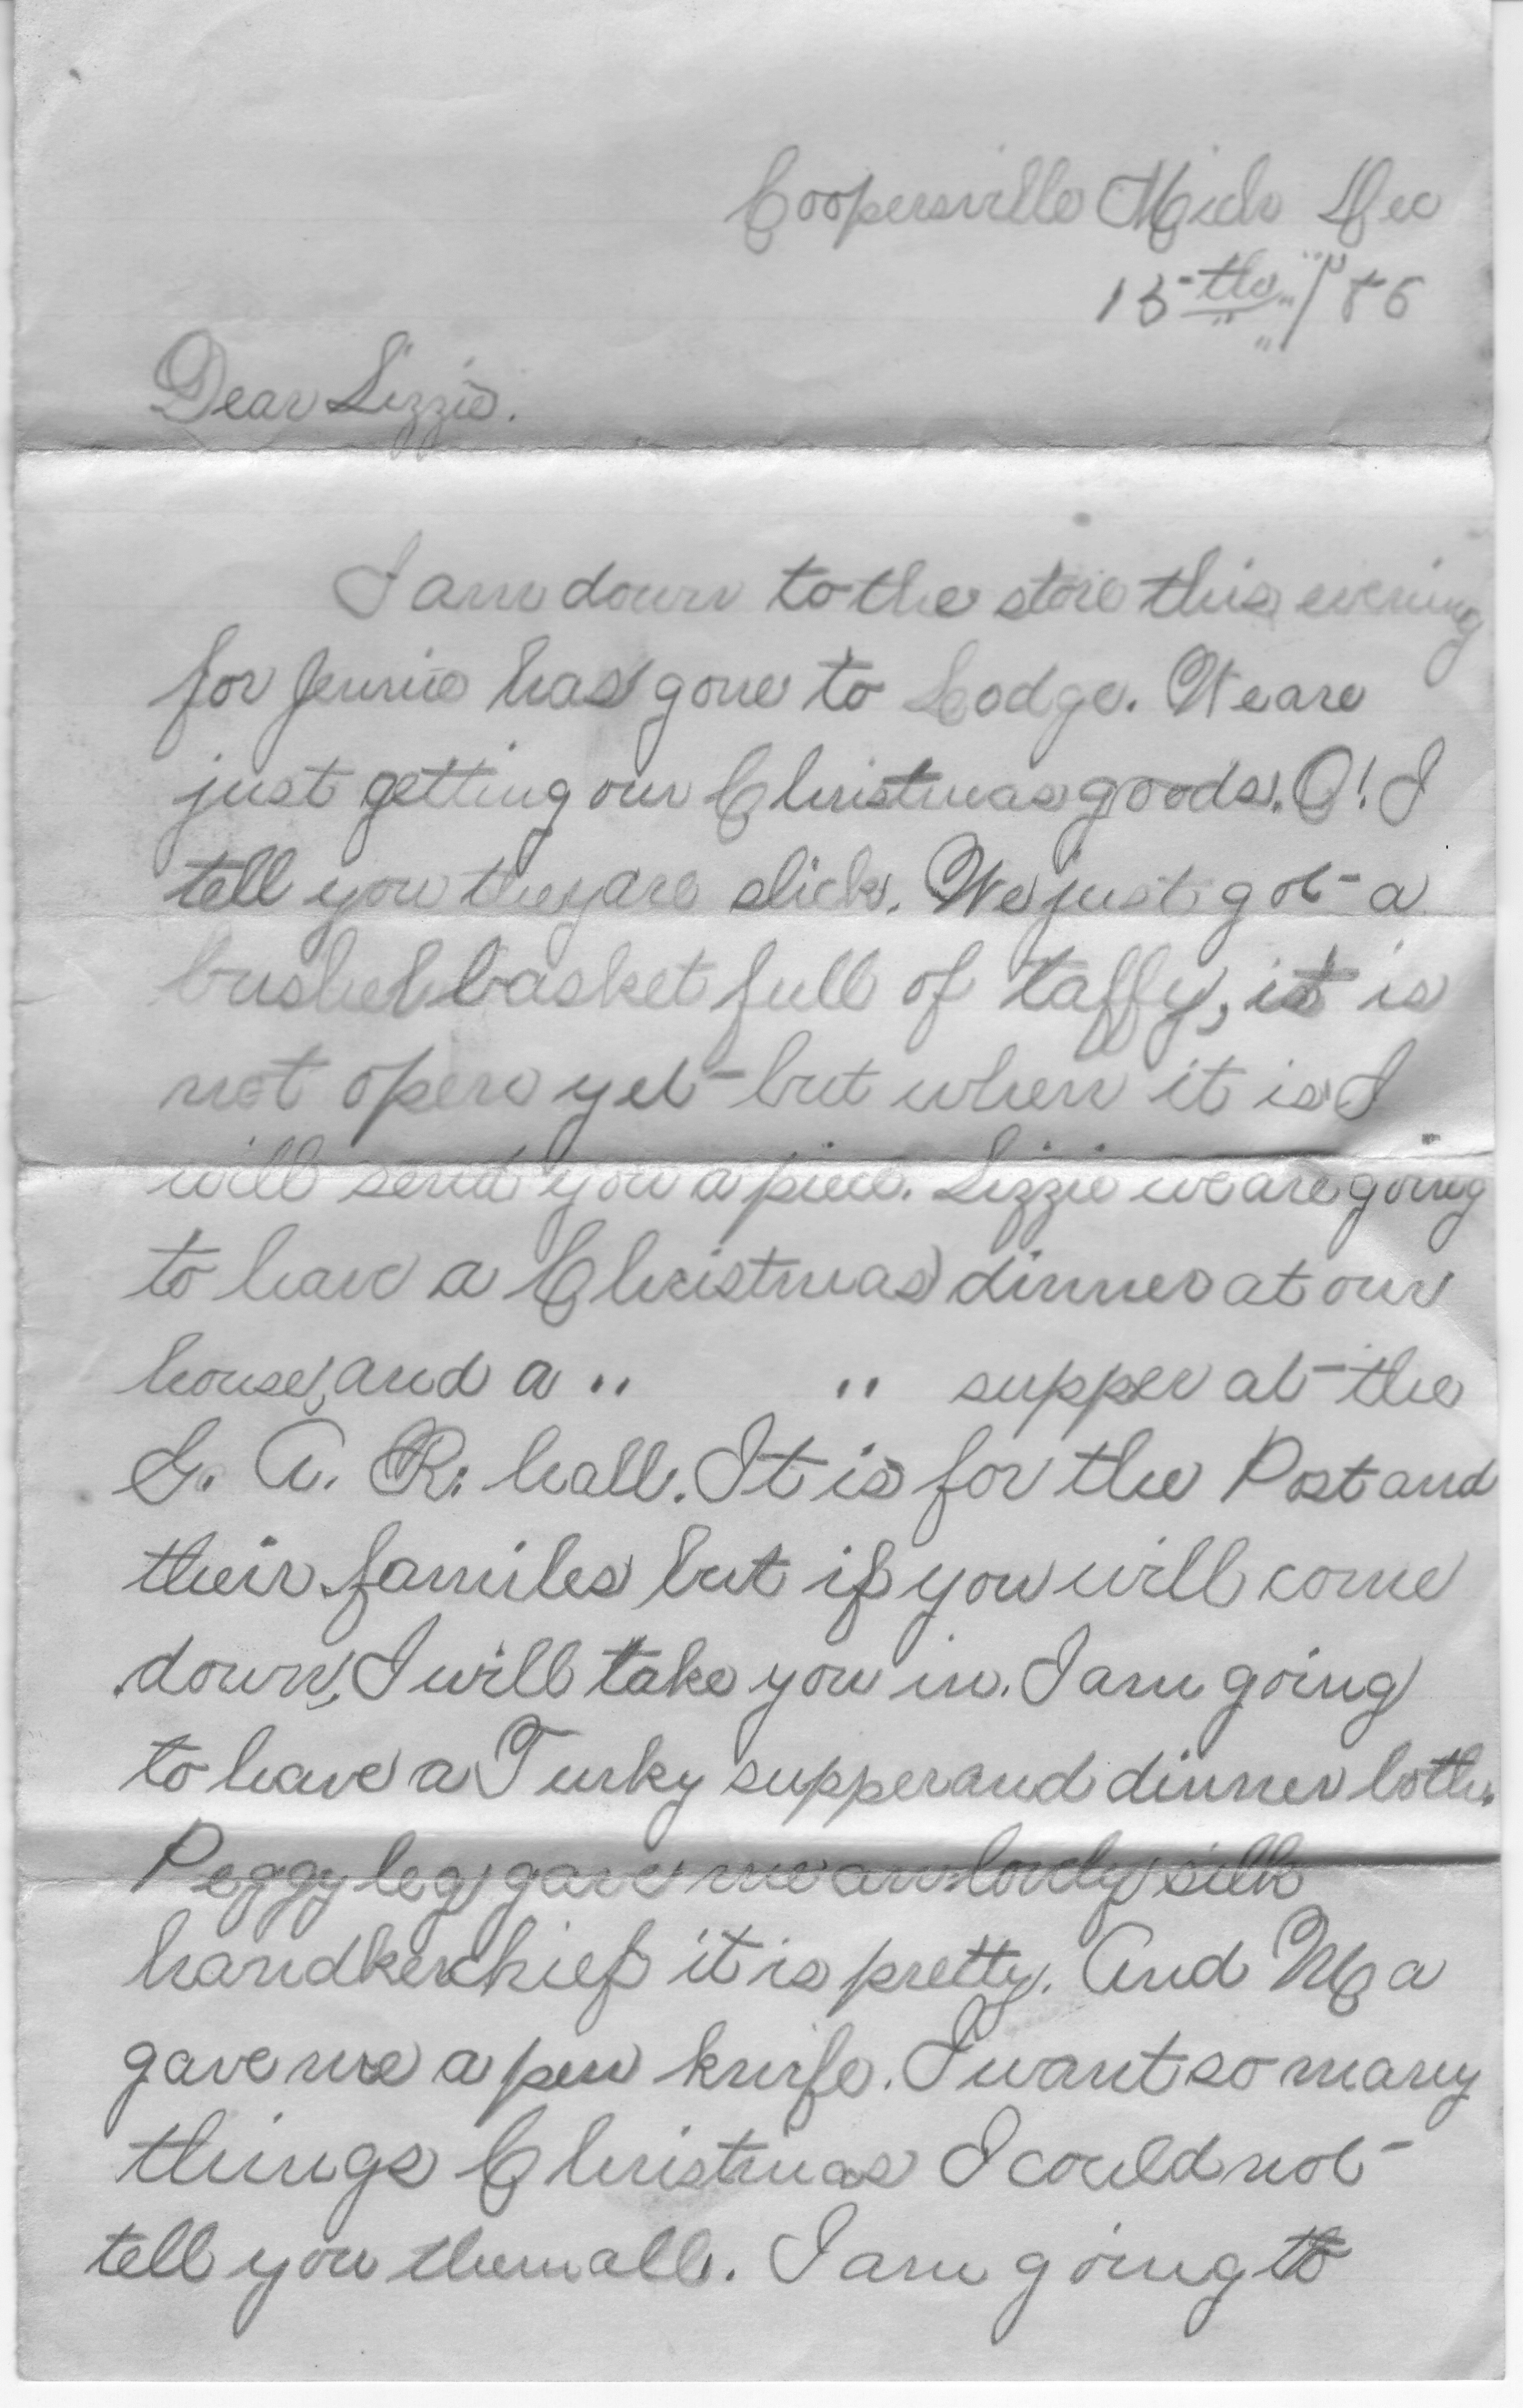 Coopersville Mich Dec
13-th / 86
Dear Lizzie.
I am down to the store this evening
for Jennie has gone to Lodge. We are
just getting our Christmas goods. O! I
tell you they are slick. We just got a
bushel basket full of taffy, it is
not open yet but when it is I
will send you a piece. Lizzie we are going
to have a Christmas dinner at our
house, and a " " supper at the
G. A. R. hall. It is for the Post and
their familes but if you will come
down, I will take you in. I am going
to have a Turky supper and dinner both.
Peggy leg gave me an lovely silk
handkerchief it is pretty. And Ma
gave me a pen knife. I want so many
things Christmas I could not
tell you them all. I am going to